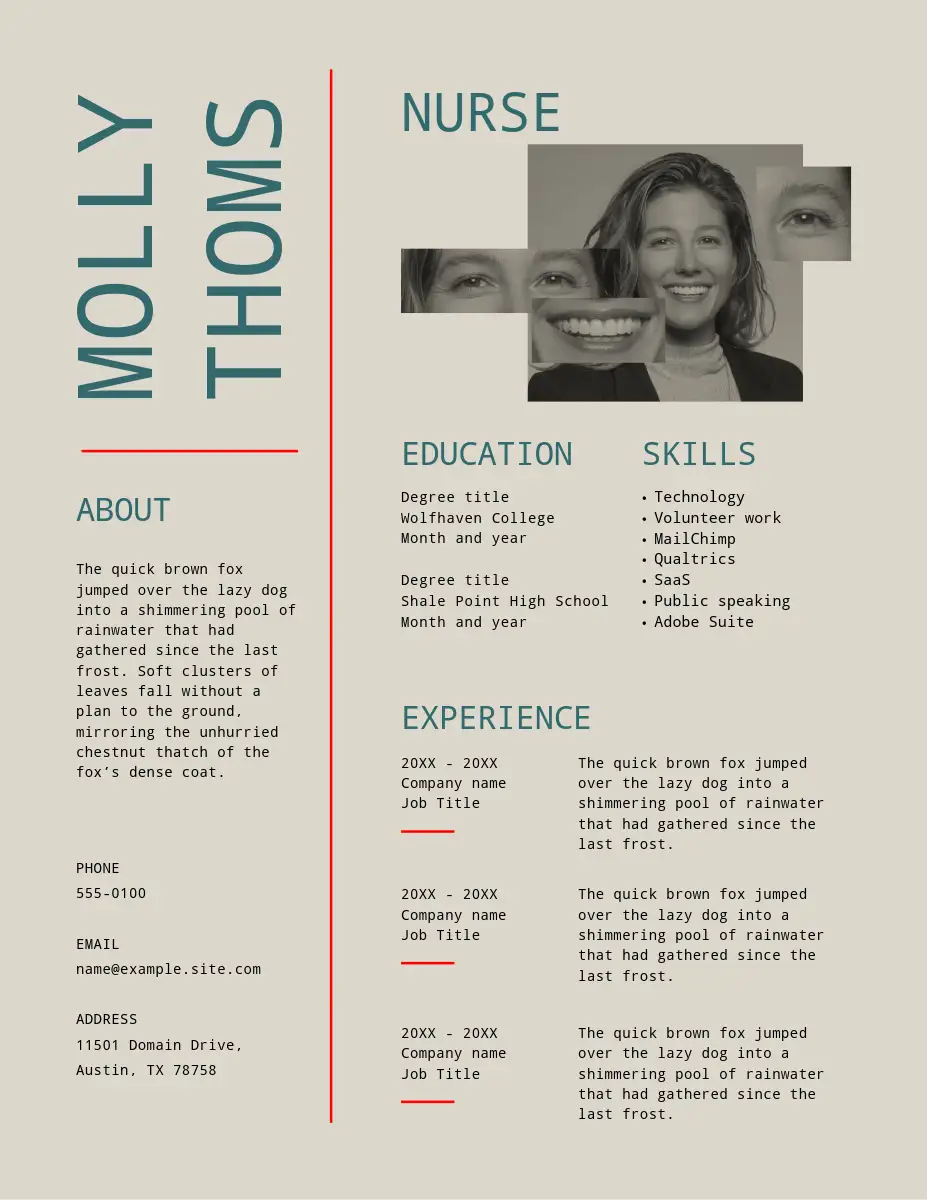 MOLLY
THOMS
ABOUT
The quick brown fox
jumped over the lazy dog
into a shimmering pool of
rainwater that had
gathered since the last
frost. Soft clusters of
leaves fall without a
plan to the ground,
mirroring the unhurried
chestnut thatch of the
fox’s dense coat.
PHONE
555-0100
EMAIL
name@example.site.com
ADDRESS
11501 Domain Drive,
Austin, TX 78758
NURSE
EDUCATION
Degree title
Wolfhaven College
Month and year
Degree title
Shale Point High School
Month and year
SKILLS
• Technology
• Volunteer work
• MailChimp
• Qualtrics
• SaaS
• Public speaking
• Adobe Suite
EXPERIENCE
20XX - 20XX
Company name
Job Title
The quick brown fox jumped
over the lazy dog into a
shimmering pool of rainwater
that had gathered since the
last frost.
20XX - 20XX
Company name
Job Title
The quick brown fox jumped
over the lazy dog into a
shimmering pool of rainwater
that had gathered since the
last frost.
20XX - 20XX
Company name
Job Title
The quick brown fox jumped
over the lazy dog into a
shimmering pool of rainwater
that had gathered since the
last frost.